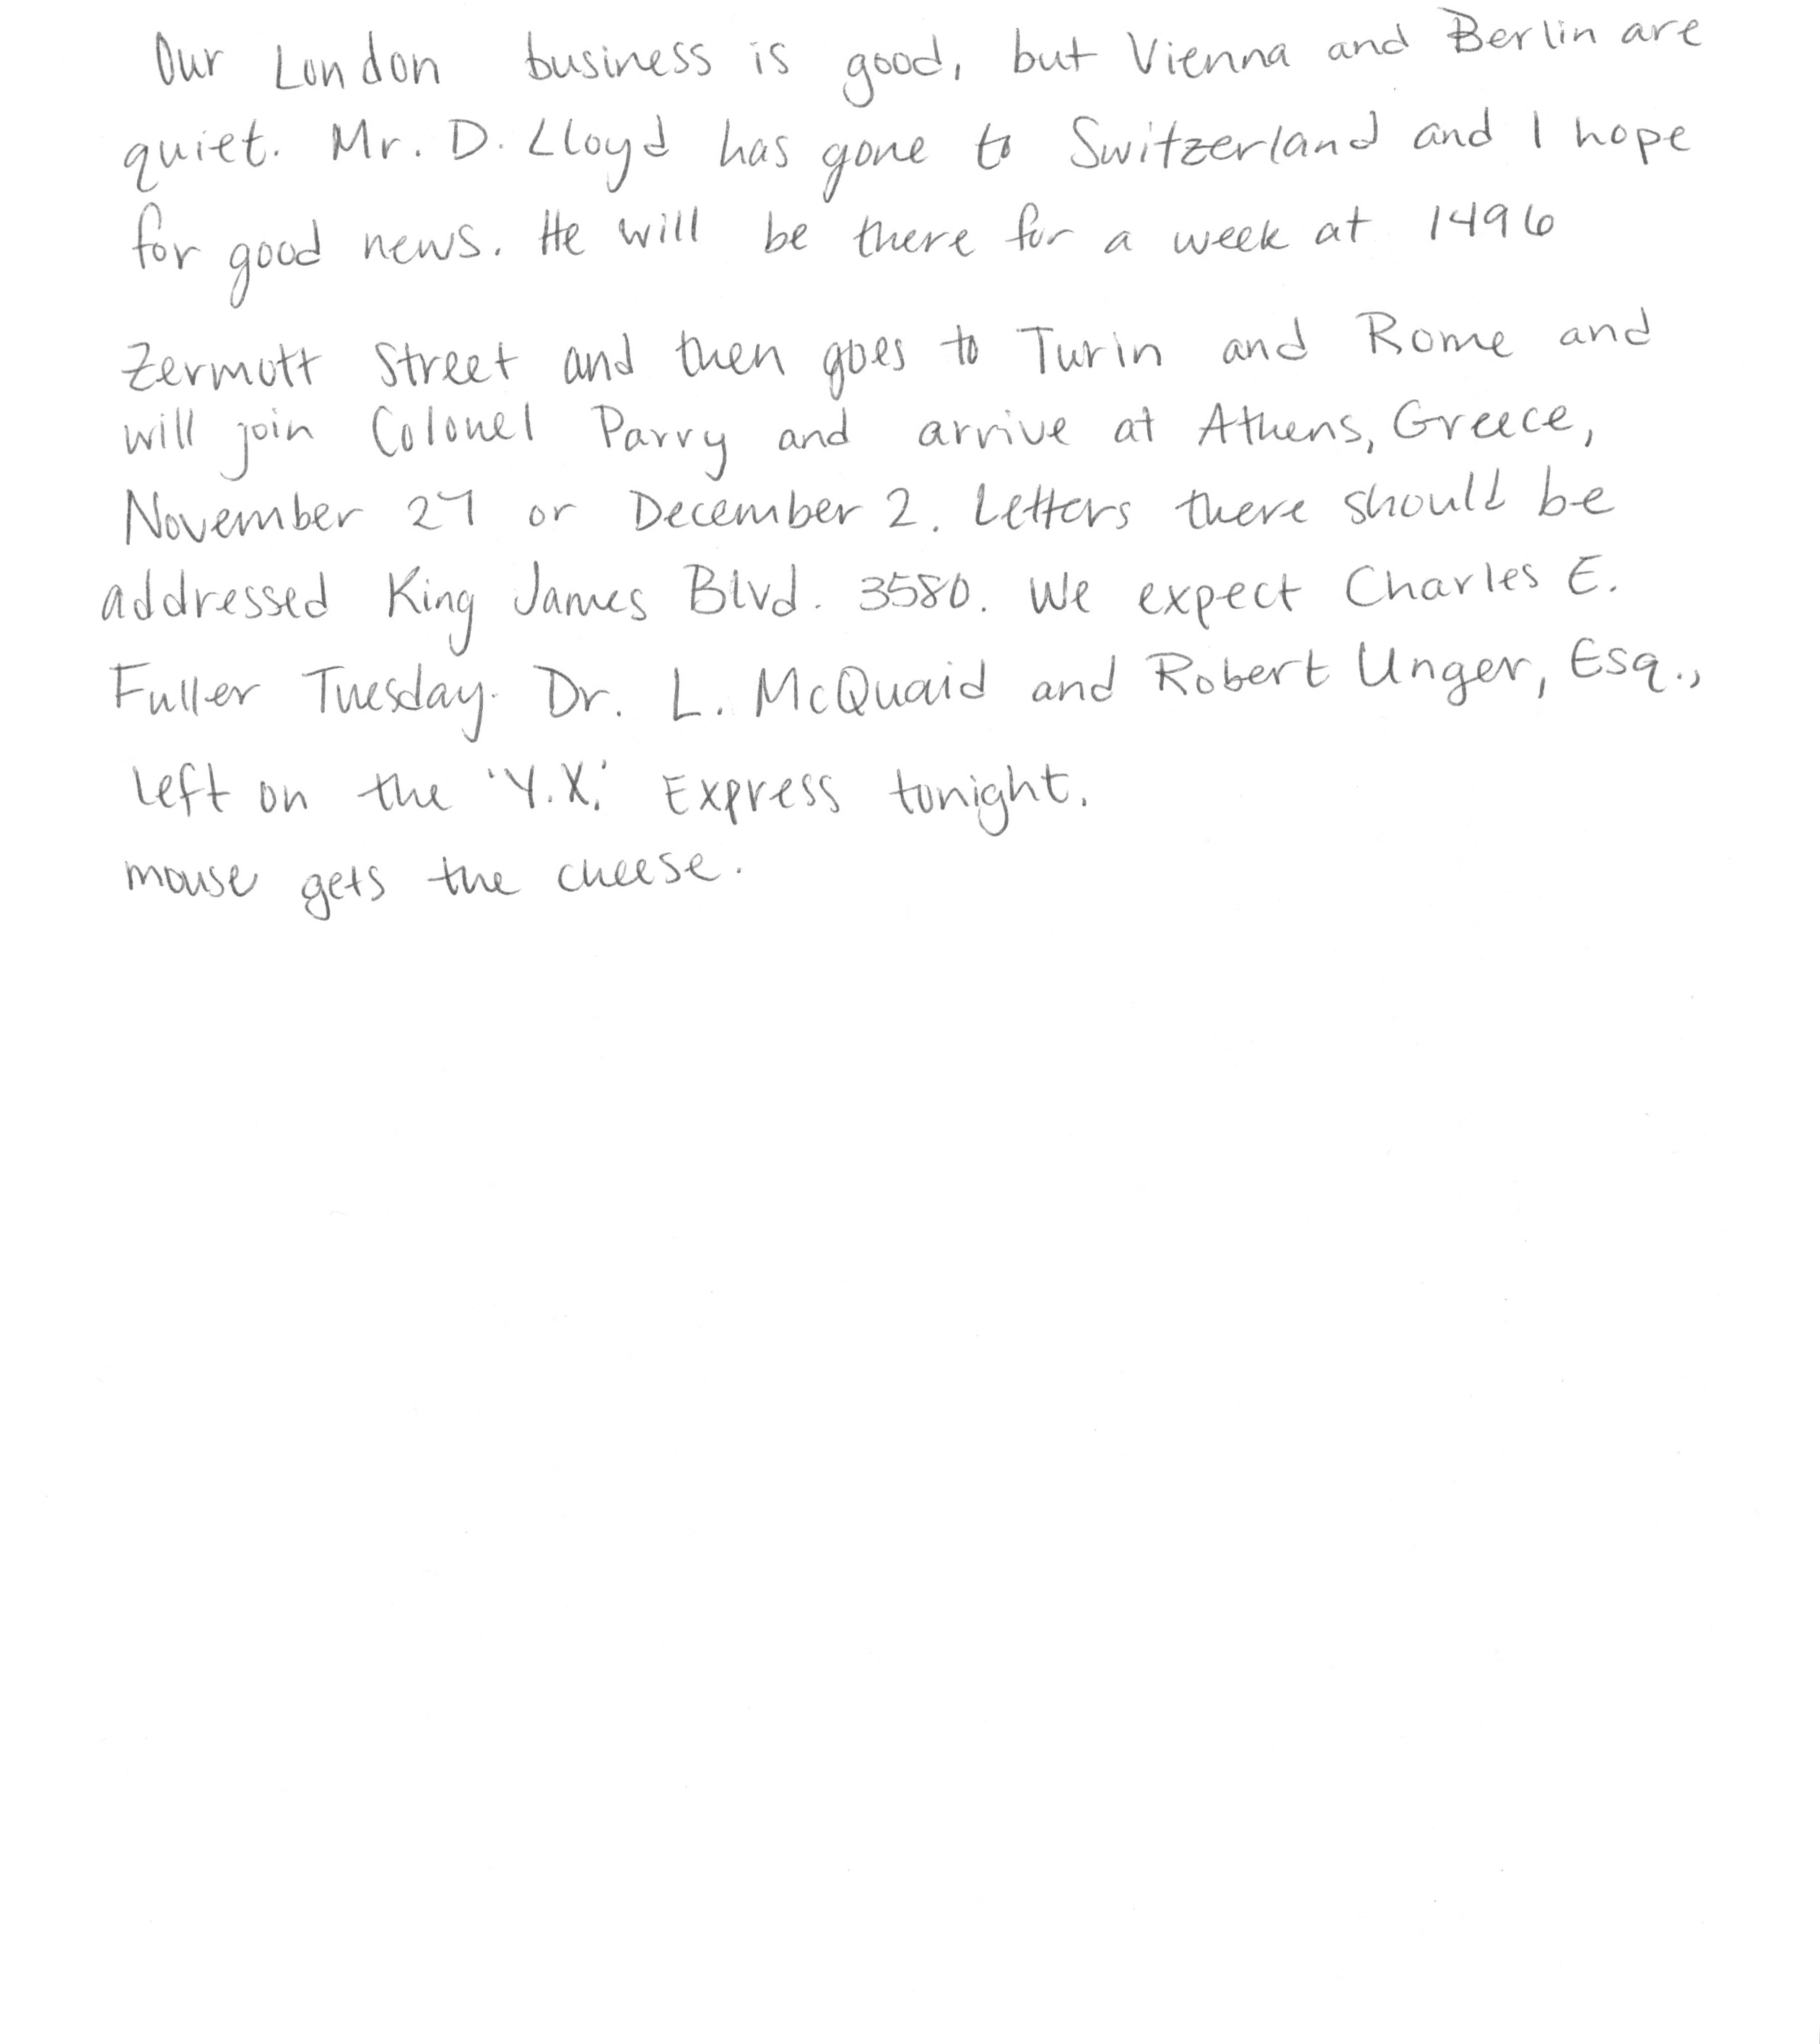 Our London business is good, but Vienna and Berlin are
quiet. Mr. D. Lloyd has gone to Switzerland and I hope
for good news. He will be there for a week at 1496
Zermott Street and then goes to Turin and Rome and
will join Colonel Parry and arrive at Athens, Greece,
November 27 or December 2. Letters there should be
addressed King James Blvd. 3580. We expect Charles E.
Fuller Tuesday. Dr. L. McQuaid and Robert Unger, Esq.,
left on the 'Y.X.' Express tonight.
mouse gets the cheese.